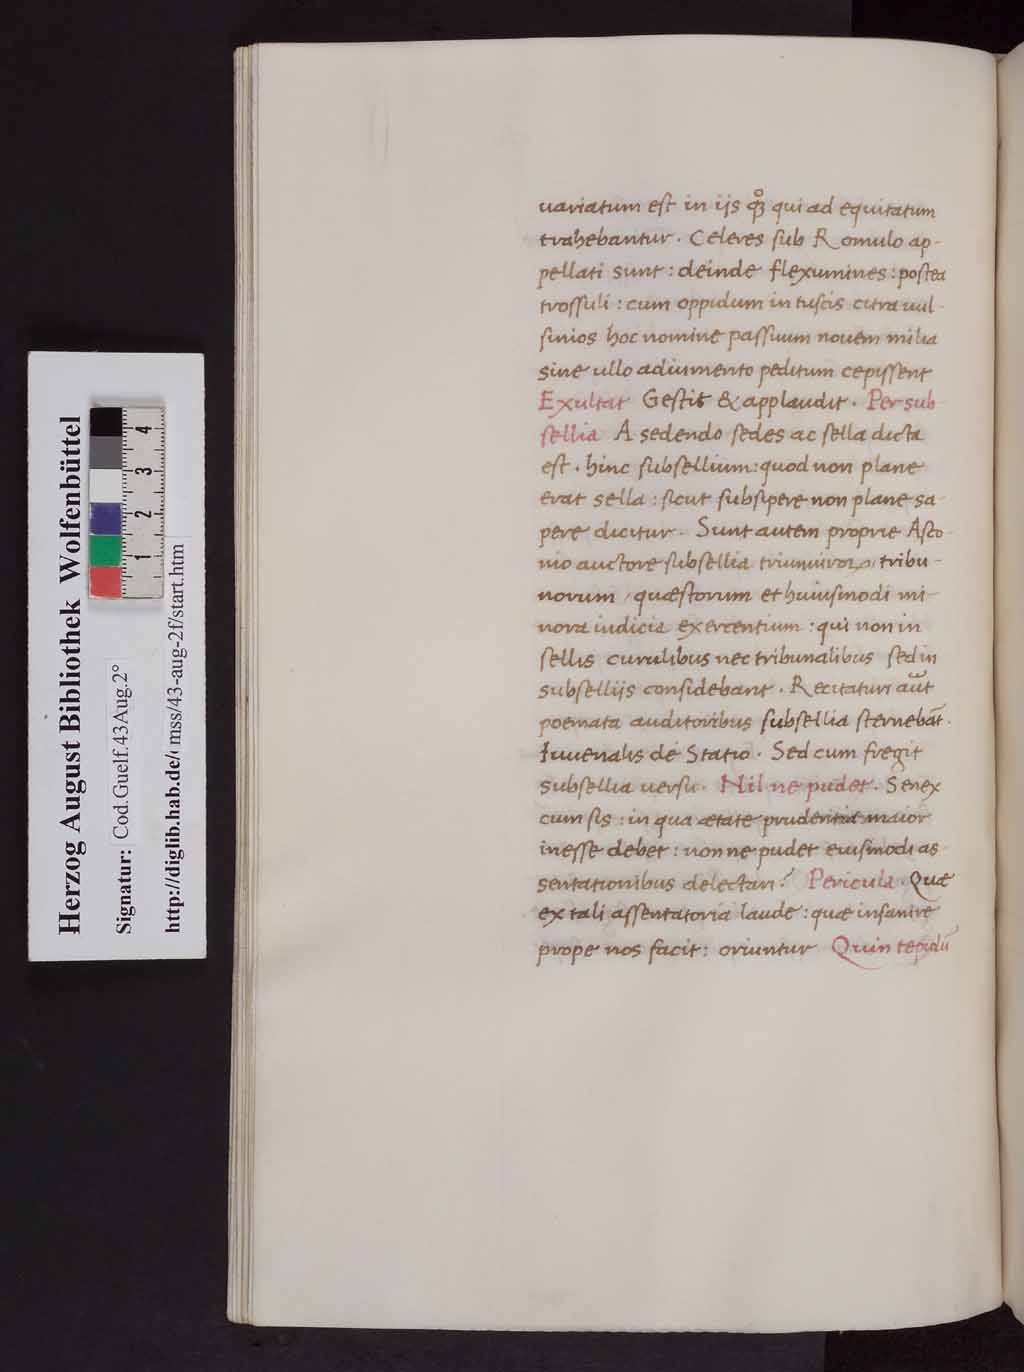 Herzog August Bibliothek Wolfenbüttel
Signatur: Cod.Guelf.43Aug.2°
http://diglib.hab.de/ mss/43-aug-2f/start.htm
1 2 3 4
uariatum est in ijs qui ad equitatum
trahebantur. Celeres sub Romulo ap-
pellati sunt: deinde flexumines: postea
trossuli: cum oppidum in tuscis citra uul-
sinios hoc nomine passuum nouem milia
sine ullo adiumento peditum cepissent
Exultat Gestit & applaudit. Per sub
sellia A sedendo sedes ac sella dicta
est. hinc subsellium: quod non plane
erat sella: sicut subsipere non plane sa-
pere dicitur. Sunt autem proprie Asco-
nio auctore subsellia triumuiroꝝ, tribu-
norum, quæstorum et huiusmodi mi-
nora iudicia exercentium: qui non in
sellis curulibus nec tribunalibus sed in
subsellijs considebant. Recitaturi aūt
poemata auditoribus subsellia sternebāt.
Iuuenalis de Statio. Sed cum fregit
subsellia uersu. Nil ne pudet. Senex
cum sis: in qua ætate prudentia maior
inesse debet: non ne pudet eiusmodi as-
sentationibus delectari? Pericula. Quæ
ex tali assentatoria laude: quæ insanire
prope nos facit: oriuntur Quin tepidū